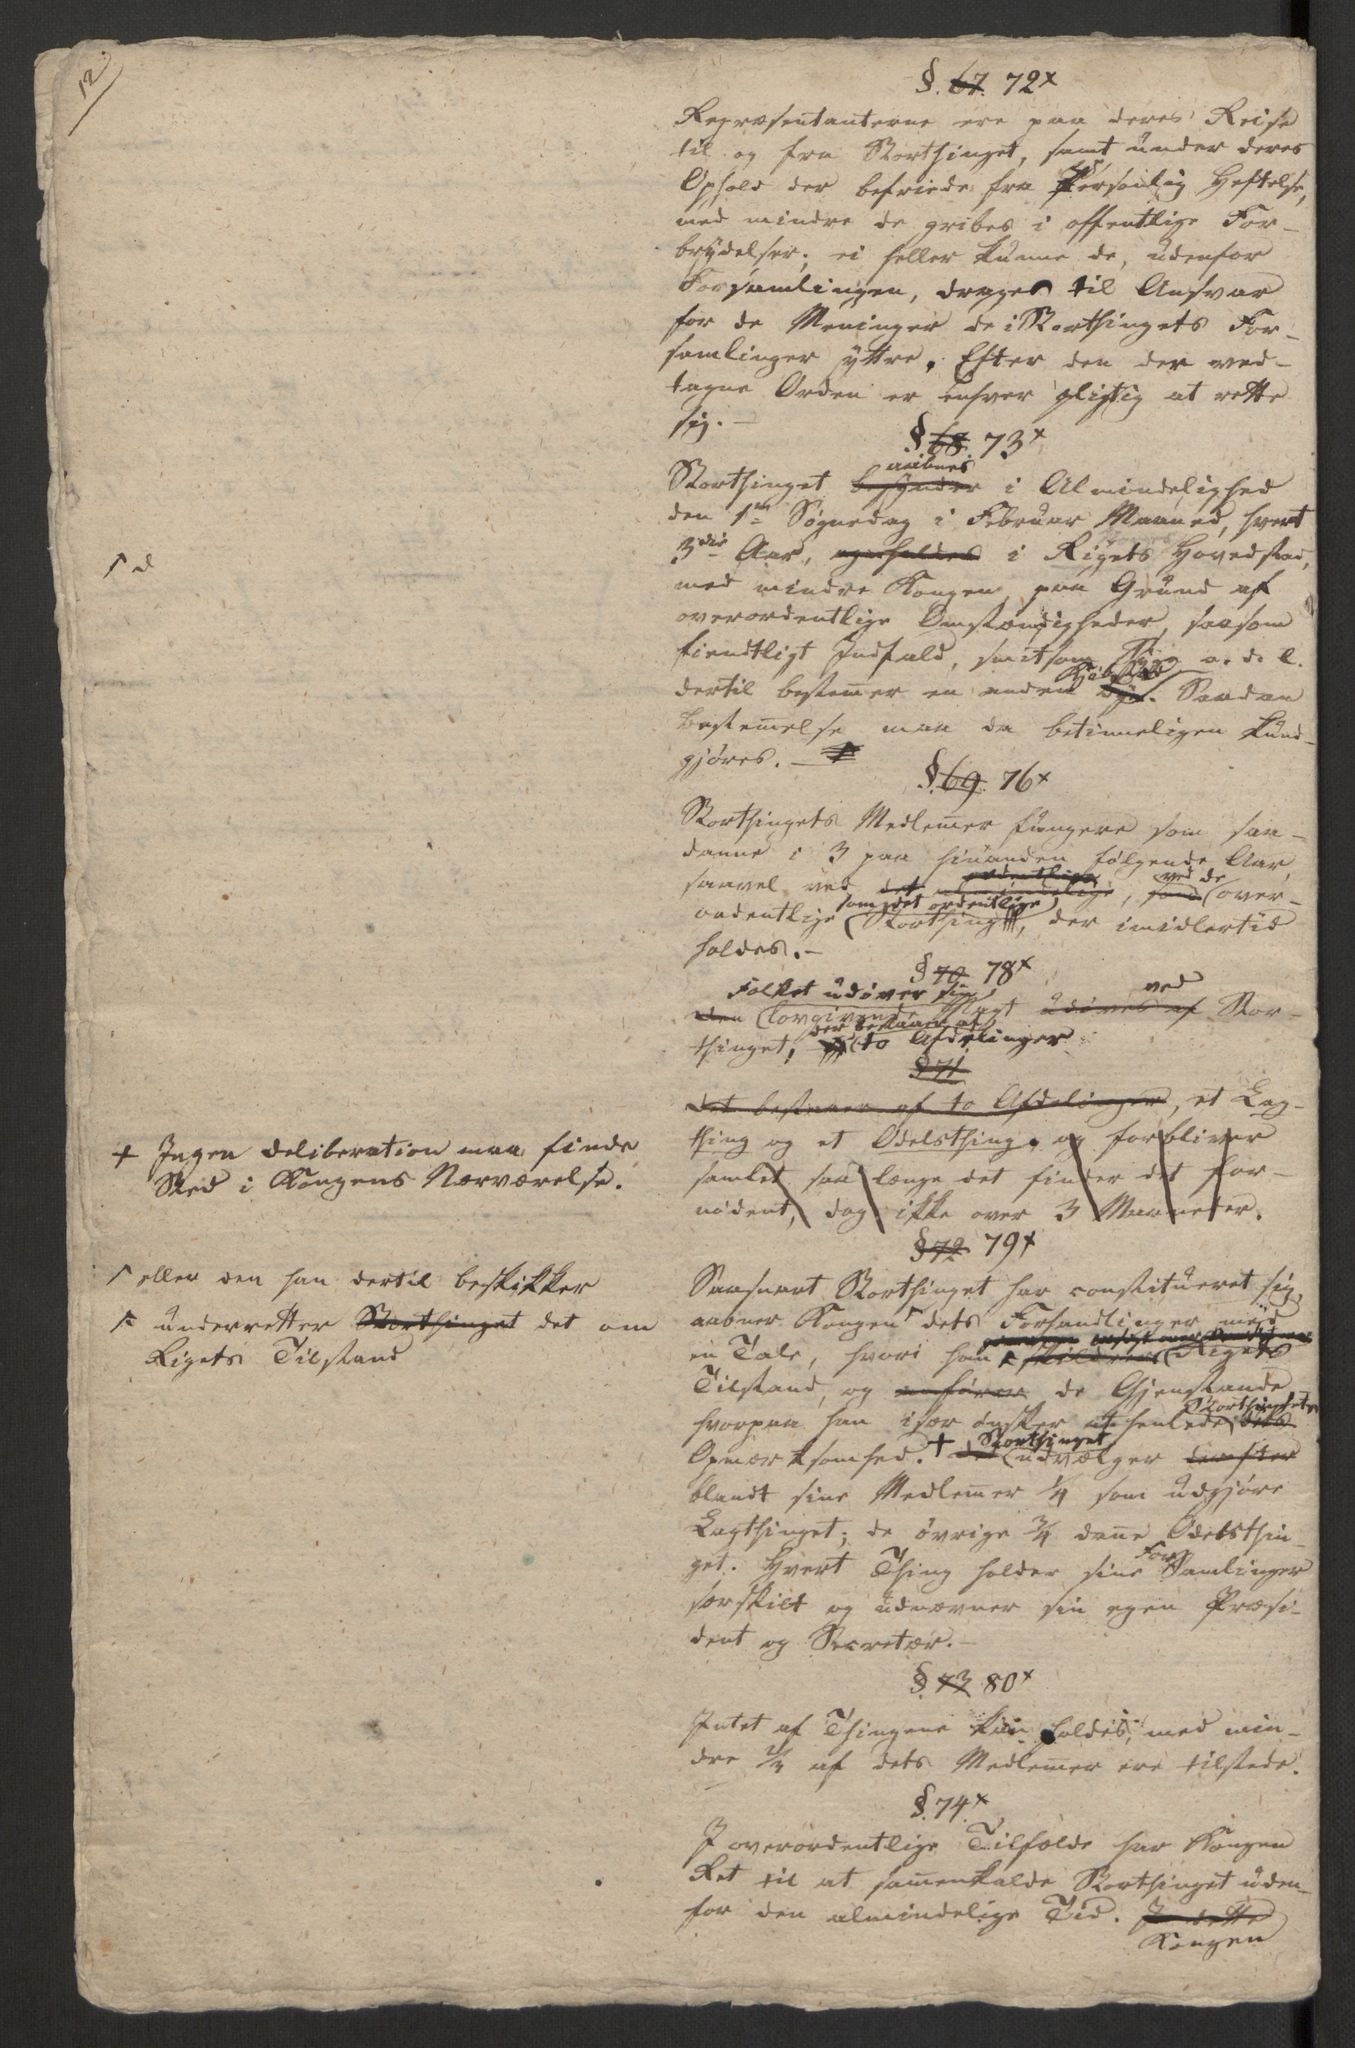 12.
§. 67. 72 x
Repræsentanterne ere paa deres Reise
til og fra Storthinget, samt under deres
Ophold der befriede fra personlig Heftelse,
med mindre de gribes i offentlige For-
brydelser; ei heller kunne de, udenfor
Forsamlingen, drages til Ansvar
for de Meninger de i Storthingets For-
samlinger yttre. Efter den der ved-
tagne Orden er enhver pligtig at rette
sig. -
§ 68. 73 x
aabnes
Storthinget begynder i Almindelighed
den 1ste Søgnedag i Februar Maaned, hvert
3die Aar, og holdes i Rigets Hovedstad,
med mindre Kongen, paa Grund af
overordentlige Omstændigheder, saasom
fiendtligt Indfald, smitsom Syge o. d. l.
Kjøbstad
dertil bestemer en anden Bye. Saadan
Bestemelse maa da betimeligen kund-
gjøres. -
§. 69. 76 x
Storthingets Medlemer fungere som saa-
danne i 3 paa hinanden følgende Aar,
ordentlige ved de
saavel ved det almindelige, som over-
som det ordentlige
ordentlige Storthing, der imidlertid
holdes. -
§ 70. 78 x
Folket udøver sin ved
den lovgivende Magt udøves af Stor-
der bestaaer af
thinget, to Afdelinger
§ 71
det bestaaer af to Afdelinger, et Lag-
thing og et Odelsthing. og forbliver
samlet saa længe det finder det for-
nødent, dog ikke over 3 Maaneder.
§ 72 79 x
Saasnart Storthinget har constitueret sig,
aabner Kongen ↑ dets Forhandlinger med
en Tale, hvori han ↑ skildrer Rigets
Tilstand, og anfører de Gjenstande
Storthingets
hvorpaa han især ønsker at henlede dets
Storthinget
Opmærksomhed. + det udvælger derefter
blandt sine Medlemer ¼ som udgjøre
Lagthinget; de øvrige ¾ dane Odelsthin-
For
get. Hvert Thing holder sine Samlinger
særskilt og udnævner sin egen Præsi-
dent og Secretær. -
§. 73 80 x
Intet af Thingene kan holdes, med min-
dre ⅔ af dets Medlemer ere tilstede.
§. 74. x
I overordentlige Tilfælde har Kongen
Ret til at samenkalde Storthinget uden-
for den almindelige Tid. I dette
Kongen
↑ d
+ Ingen deliberation maa finde
Sted i Kongens Nærværelse.
↑ eller den han dertil beskikker
↑ underretter Storthinget det om
Rigets Tilstand